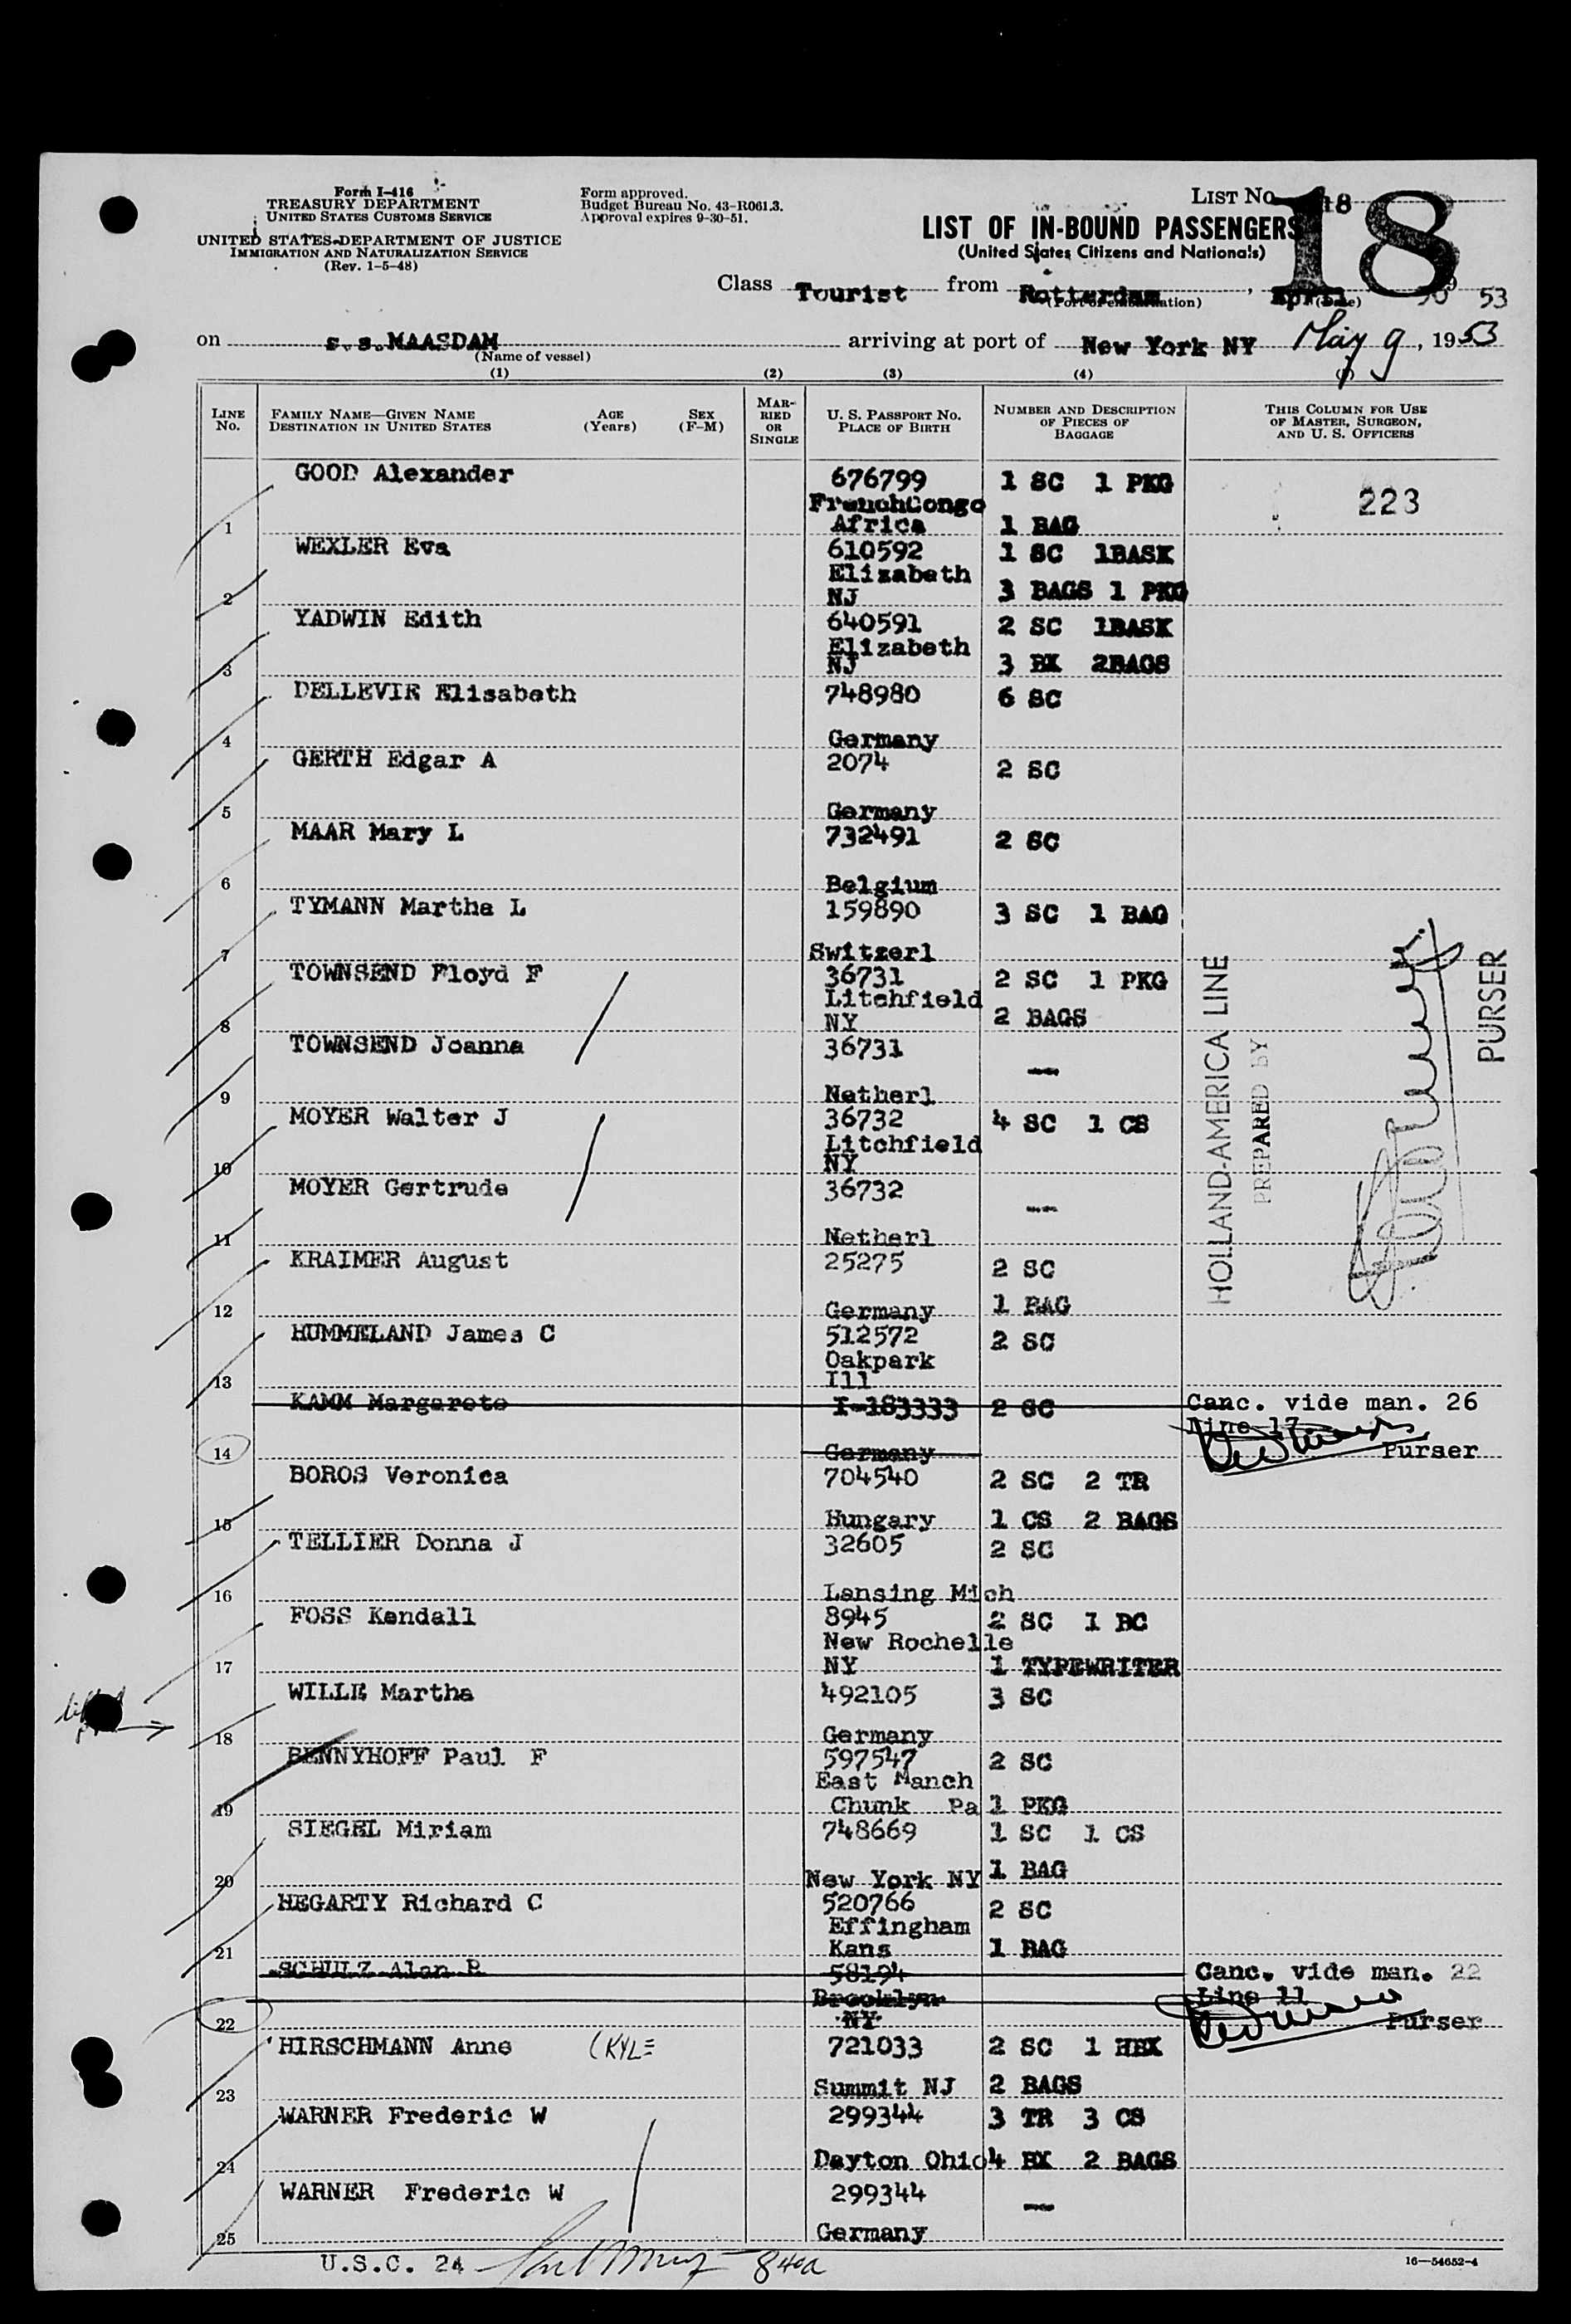 Form I-416
TREASURY DEPARTMENT
UNITED STATES CUSTOMS SERVICE
UNITED STATES DEPARTMENT OF JUSTICE
IMMIGRATION AND NATURALIZATION SERVICE
(Rev. 1-5-48)
Form approved.
Budget Bureau No. 43-R061.3.
Approval expires 9-30-51.
LIST No. 18
18
LIST OF IN-BOUND PASSENGERS
(United States Citizens and Nationals)
Class Tourist from Rotterdam, April 30 53
(Port of embarkation) (Date)
on s.s.MAASDAM arriving at port of New York NY May 9, 1953
(Name of vessel)
(1) (2) (3) (4)
LINE No. FAMILY NAME—GIVEN NAME DESTINATION IN UNITED STATES AGE (Years) SEX (F-M) MARRIED OR SINGLE U. S. PASSPORT NO. PLACE OF BIRTH NUMBER AND DESCRIPTION OF PIECES OF BAGGAGE THIS COLUMN FOR USE OF MASTER, SURGEON, AND U. S. OFFICERS
GOOD Alexander 676799 1 SC 1 PKG
FrenchCongo 223
1 Africa 1 BAG
WEXLER Eva 610592 1 SC 1BASK
Elizabeth
2 NJ 3 BAGS 1 PKG
YADWIN Edith 640591 2 SC 1BASK
Elizabeth
3 NJ 3 BX 2BAGS
DELLEVIE Elisabeth 748980 6 SC
4 Germany
GERTH Edgar A 2074 2 SC
5 Germany
MAAR Mary L 732491 2 SC
6 Belgium
TYMANN Martha L 159890 3 SC 1 BAG
7 Switzerl
TOWNSEND Floyd F 36731 2 SC 1 PKG
Litchfield
8 NY 2 BAGS
TOWNSEND Joanna 36731 —
9 Netherl
MOYER Walter J 36732 4 SC 1 CS
Litchfield
10 NY
MOYER Gertrude 36732 —
11 Netherl
KRAIMER August 25275 2 SC
12 Germany 1 BAG
HOLLAND-AMERICA LINE
PREPARED BY
PURSER
HUMMELAND James C 512572 2 SC
Oakpark
13 Ill
KAMM Margarete I-183333 2 SC Canc. vide man. 26
Line 17
14 Germany Purser
BOROS Veronica 704540 2 SC 2 TR
15 Hungary 1 CS 2 BAGS
TELLIER Donna J 32605 2 SC
16 Lansing Mich
FOSS Kendall 8945 2 SC 1 BC
New Rochelle
17 NY 1 TYPEWRITER
WILLE Martha 492105 3 SC
18 Germany
BENNYHOFF Paul F 597547 2 SC
East Manch
19 Chunk Pa 1 PKG
SIEGEL Miriam 748669 1 SC 1 CS
20 New York NY 1 BAG
HEGARTY Richard C 520766 2 SC
Effingham
21 Kans 1 BAG
SCHULZ Alan R 58194 Canc. vide man. 22
Brooklyn Line 11
22 NY Purser
HIRSCHMANN Anne (KYLE 721033 2 SC 1 HBX
23 Summit NJ 2 BAGS
WARNER Frederic W 299344 3 TR 3 CS
24 Dayton Ohio 4 BX 2 BAGS
WARNER Frederic W 299344 —
25 Germany
U.S.C. 24 840a
16—54652-4